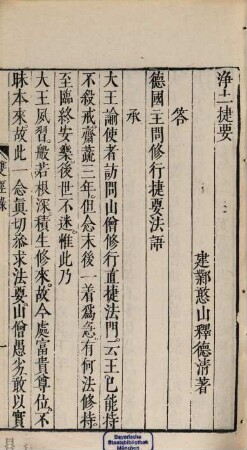 淨土捷要
建鄴憨山釋德清著
答
德國王問修行捷要法語
承
大王諭使者訪問山僧修行直捷法門。云王已能持
不殺戒。齋蔬三年。但念末後一着爲急。有何法修持。
至臨終安樂。後世不迷。惟此乃
大王夙習。般若根深積生修來。故今處富貴尊位。不
昧本來。故此一念眞切叅求法要。山僧愚劣。敢以實
雙徑藏
Bayerische
Staatsbibliothek
München